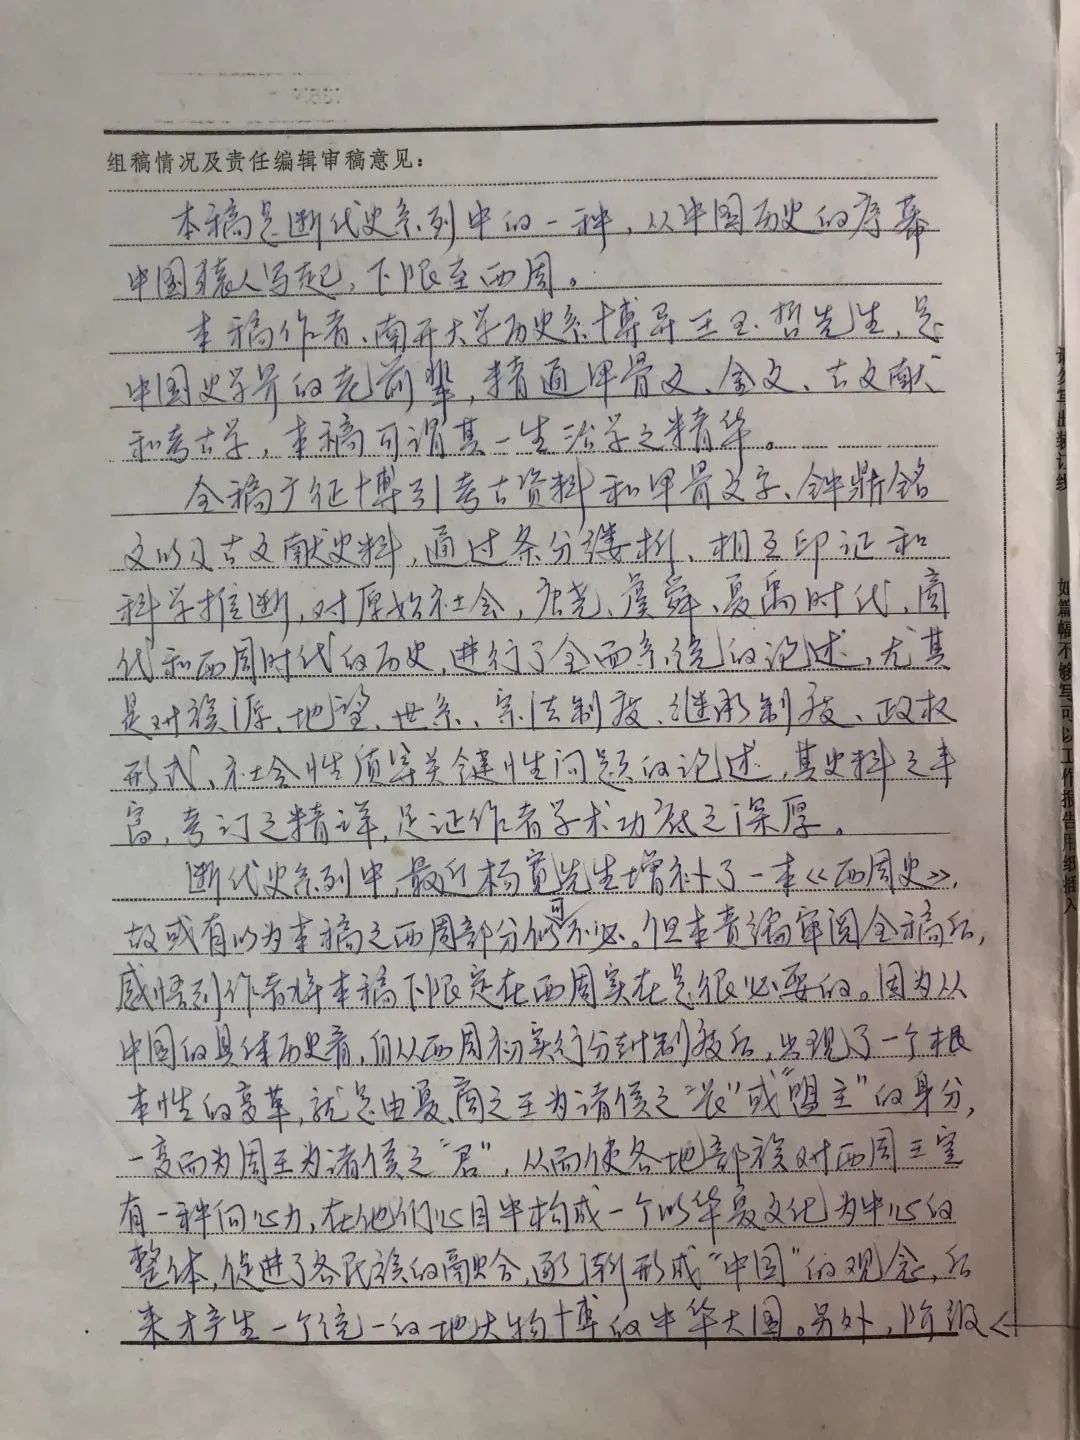 组稿情况及责任编辑审稿意见：
本稿是断代史系列中的一种，从中国历史的序幕
中国猿人写起，下限至西周。
本稿作者、南开大学历史系博导王玉哲先生，是
中国史学界的老前辈，精通甲骨文、金文、古文献
和考古学，本稿可谓其一生治学之精华。
全稿广征博引考古资料和甲骨文字、钟鼎铭
文以及古文献史料，通过条分缕析、相互印证和
科学推断，对原始社会，唐尧、虞舜、夏禹时代、商
代和西周时代的历史，进行了全面系统的论述，尤其
是对族源、地望、世系、宗法制度、继承制度、政权
形式、社会性质等关键性问题的论述，其史料之丰
富，考订之精详，足证作者学术功底之深厚。
断代史系列中，最近杨宽先生增补了一本《西周史》，
故或有以为本稿之西周部分似可不必。但本责编审阅全稿后，
感悟到作者将本稿下限定在西周实在是很必要的。因为从
中国的具体历史看，自从西周初实行分封制度后，出现了一个根
本性的变革，就是由夏、商之王为诸侯之“长”或“盟主”的身分，
一变而为周王为诸侯之“君”，从而使各地部族对西周王室
有一种向心力，在他们心目中构成一个以华夏文化为中心的
整体，促进了各民族的融合，逐渐形成“中国”的观念，后
来才产生一个统一的地大物博的中华大国。另外，阶级
如篇幅不够写可以工作报告用纸插入